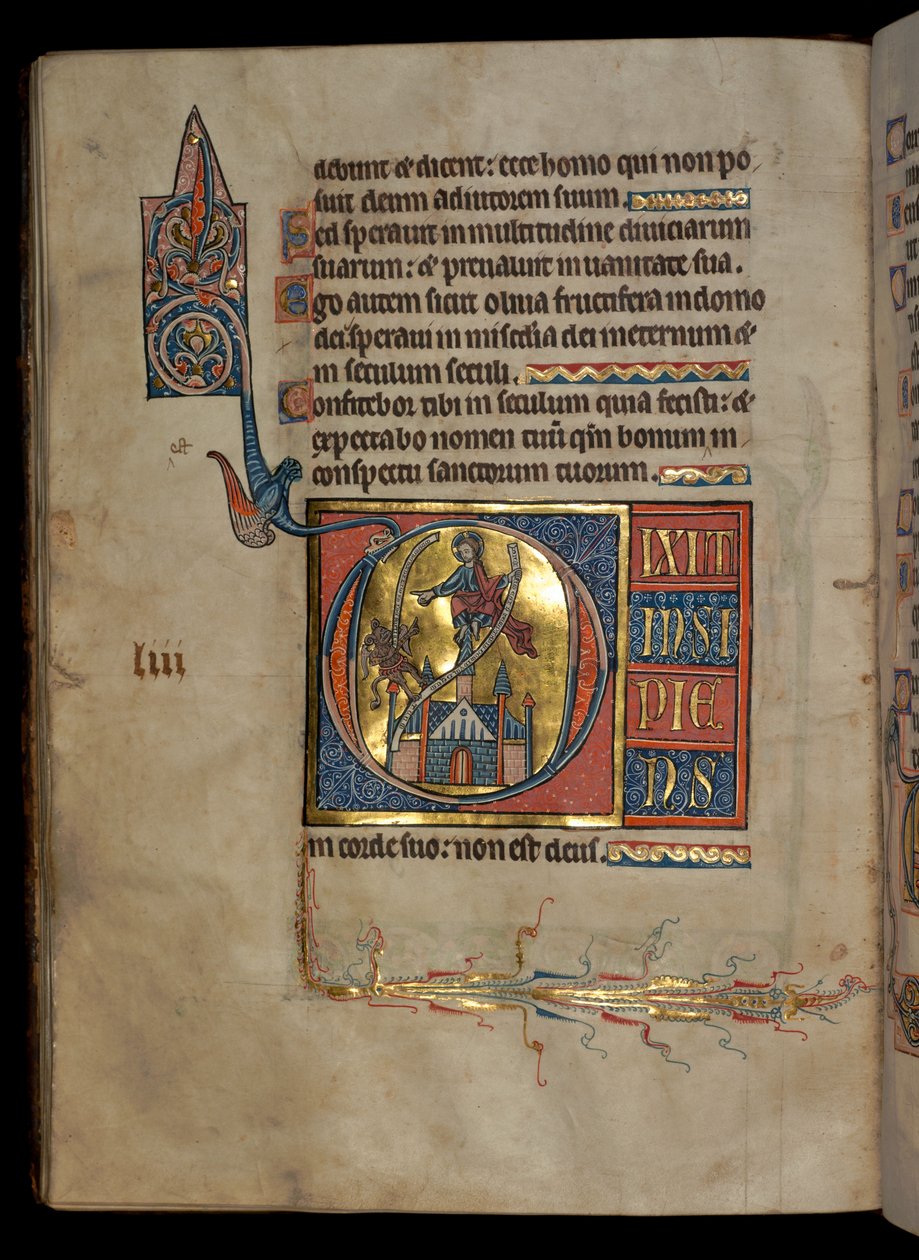 debunt & dicent: ecce homo qui non po
suit deum adiutorem suum.
Sed sperauit in multitudine diuiciarum
suarum: & preualuit in uanitate sua.
Ego autem sicut oliua fructifera in domo
dei: speraui in mis̄cdīa dei in eternum &
in seculum seculi.
Confitebor tibi in seculum quia fecisti: &
expectabo nomen tuū qm̄ bonum in
est
conspectu sanctorum tuorum.
DIXIT
INSI
PIE
NS
liii
in corde suo: non est deus.